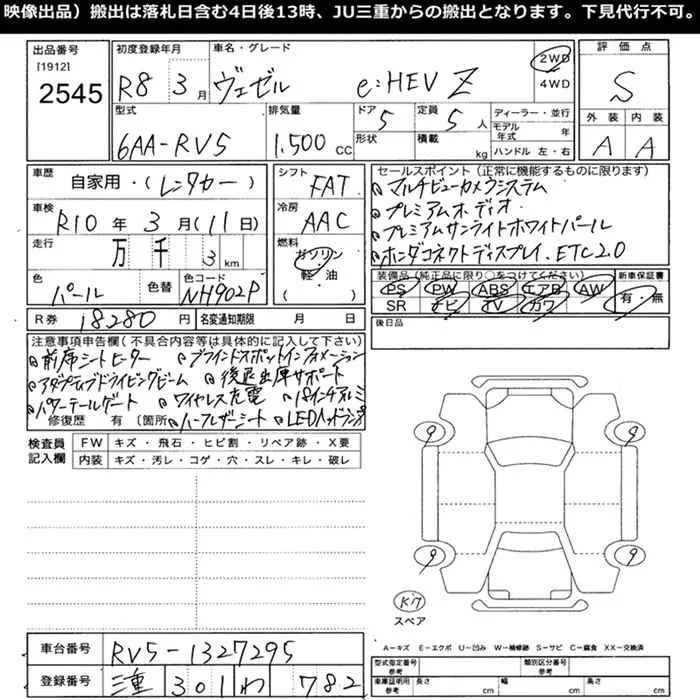 映像出品）搬出は落札日含む4日後13時、JU三重からの搬出となります。下見代行不可。
出品番号
[1912]
2545
初度登録年月
R8 3月
車名・グレード
ヴェゼル e:HEV Z
2WD
4WD
評価点
S
外装 内装
A A
型式
6AA-RV5
排気量
1.500 CC
ドア
5
形状
定員
5 人
積載
kg
ディーラー・並行
モデル年式 年
ハンドル 左・右
車歴
自家用・（レンタカー）
車検
R10 年 3 月（11日）
走行
万 千 3 km
色
パール
色替
色コード
NH902P
シフト
FAT
冷房
AAC
燃料
ガソリン
軽・油
（ ）
セールスポイント（正常に機能するものに限ります）
マルチビューカメラシステム
プレミアムオーディオ
プレミアムサンライトホワイトパール
ホンダコネクトディスプレイ、ETC2.0
装備品（純正品に限り○をつけてください）
PS PW ABS エアB AW
SR ナビ TV カワ
新車保証書
有・無
R券 18280 円
名変通知期限 月 日
後日品
注意事項申告欄（不具合内容等は具体的に記入して下さい）
前席シートヒーター ブラインドスポットインフォメーション
アダプティブドライビングビーム 後退出庫サポート
パワーテールゲート ワイヤレス充電 18インチアルミ
修復歴 有〔箇所 ハーフレザーシート LEDヘッドランプ
検査員記入欄
FW キズ・飛石・ヒビ割・リペア跡・X要
内装 キズ・汚レ・コゲ・穴・スレ・キレ・破レ
9 9
9 9
スペア
車台番号
RV5-1327295
登録番号
三重 301 わ 782
A－キズ E－エクボ U－凹み W－補修跡 S－サビ C－腐食 XX－交換済
型式指定番号 参考
類別区分番号 参考
車庫証明用 参考
長さ cm
幅 cm
高さ cm